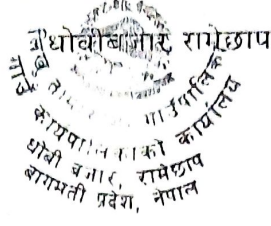 धोबीबजार, रामेछाप
गाउँपालिका
गाउँ कार्यपालिकाको कार्यालय
धोबी बजार, रामेछाप
बागमती प्रदेश, नेपाल